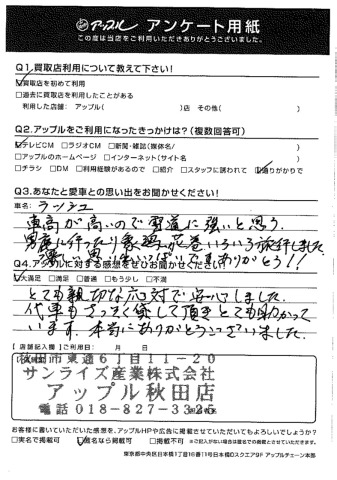 アップル アンケート用紙
この度は当店をご利用いただきありがとうございました。
Q1.買取店利用について教えて下さい!
☑買取店を初めて利用
□過去に買取店を利用したことがある
利用した店舗: アップル( )店 その他( )
Q2.アップルをご利用になったきっかけは?(複数回答可)
☑テレビCM □ラジオCM □新聞・雑誌(媒体名/ )
□アップルのホームページ □インターネット(サイト名 )
□チラシ □DM □利用経験があるので □紹介 □スタッフに誘われて ☑通りがかりで
Q3.あなたと愛車との思い出をお聞かせください!
車名: ラッシュ
車高が高いので雪道に強いと思う。
男鹿に行ったり 花巻いろいろ旅行しました
楽しい思い出いっぱいです ありがとう!!
Q4.アップルに対する感想をぜひお聞かせください!
☑大満足 □満足 □普通 □もう少し □不満
とても親切な応対で安心しました。
代車もさっそく貸して頂きとても助かって
います。本当にありがとうございました。
【店舗記入欄】ご利用日: 月 日
秋田市東通6丁目11-20
サンライズ産業株式会社
アップル秋田店
電話 018-827-3325
お客様に書いていただいた感想を、アップルHPや広告に掲載させていただいてもよろしいでしょうか?
□実名で掲載可 ☑匿名なら掲載可 □掲載不可 ※ご記入がない場合は匿名での掲載とさせていただきます。
東京都中央区日本橋1丁目16番11号日本橋Dスクエア9F アップルチェーン本部